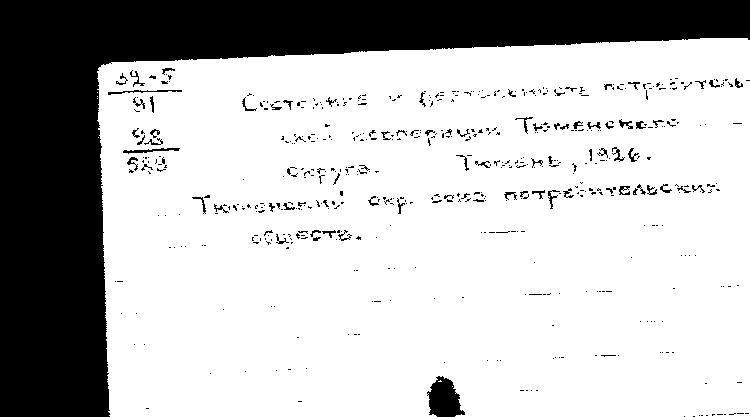 32-5
91
98
589
Состояние и деятельность потребитель-
ской кооперации Тюменского
округа. Тюмень, 1926.
Тюменский окр. союз потребительских
обществ.